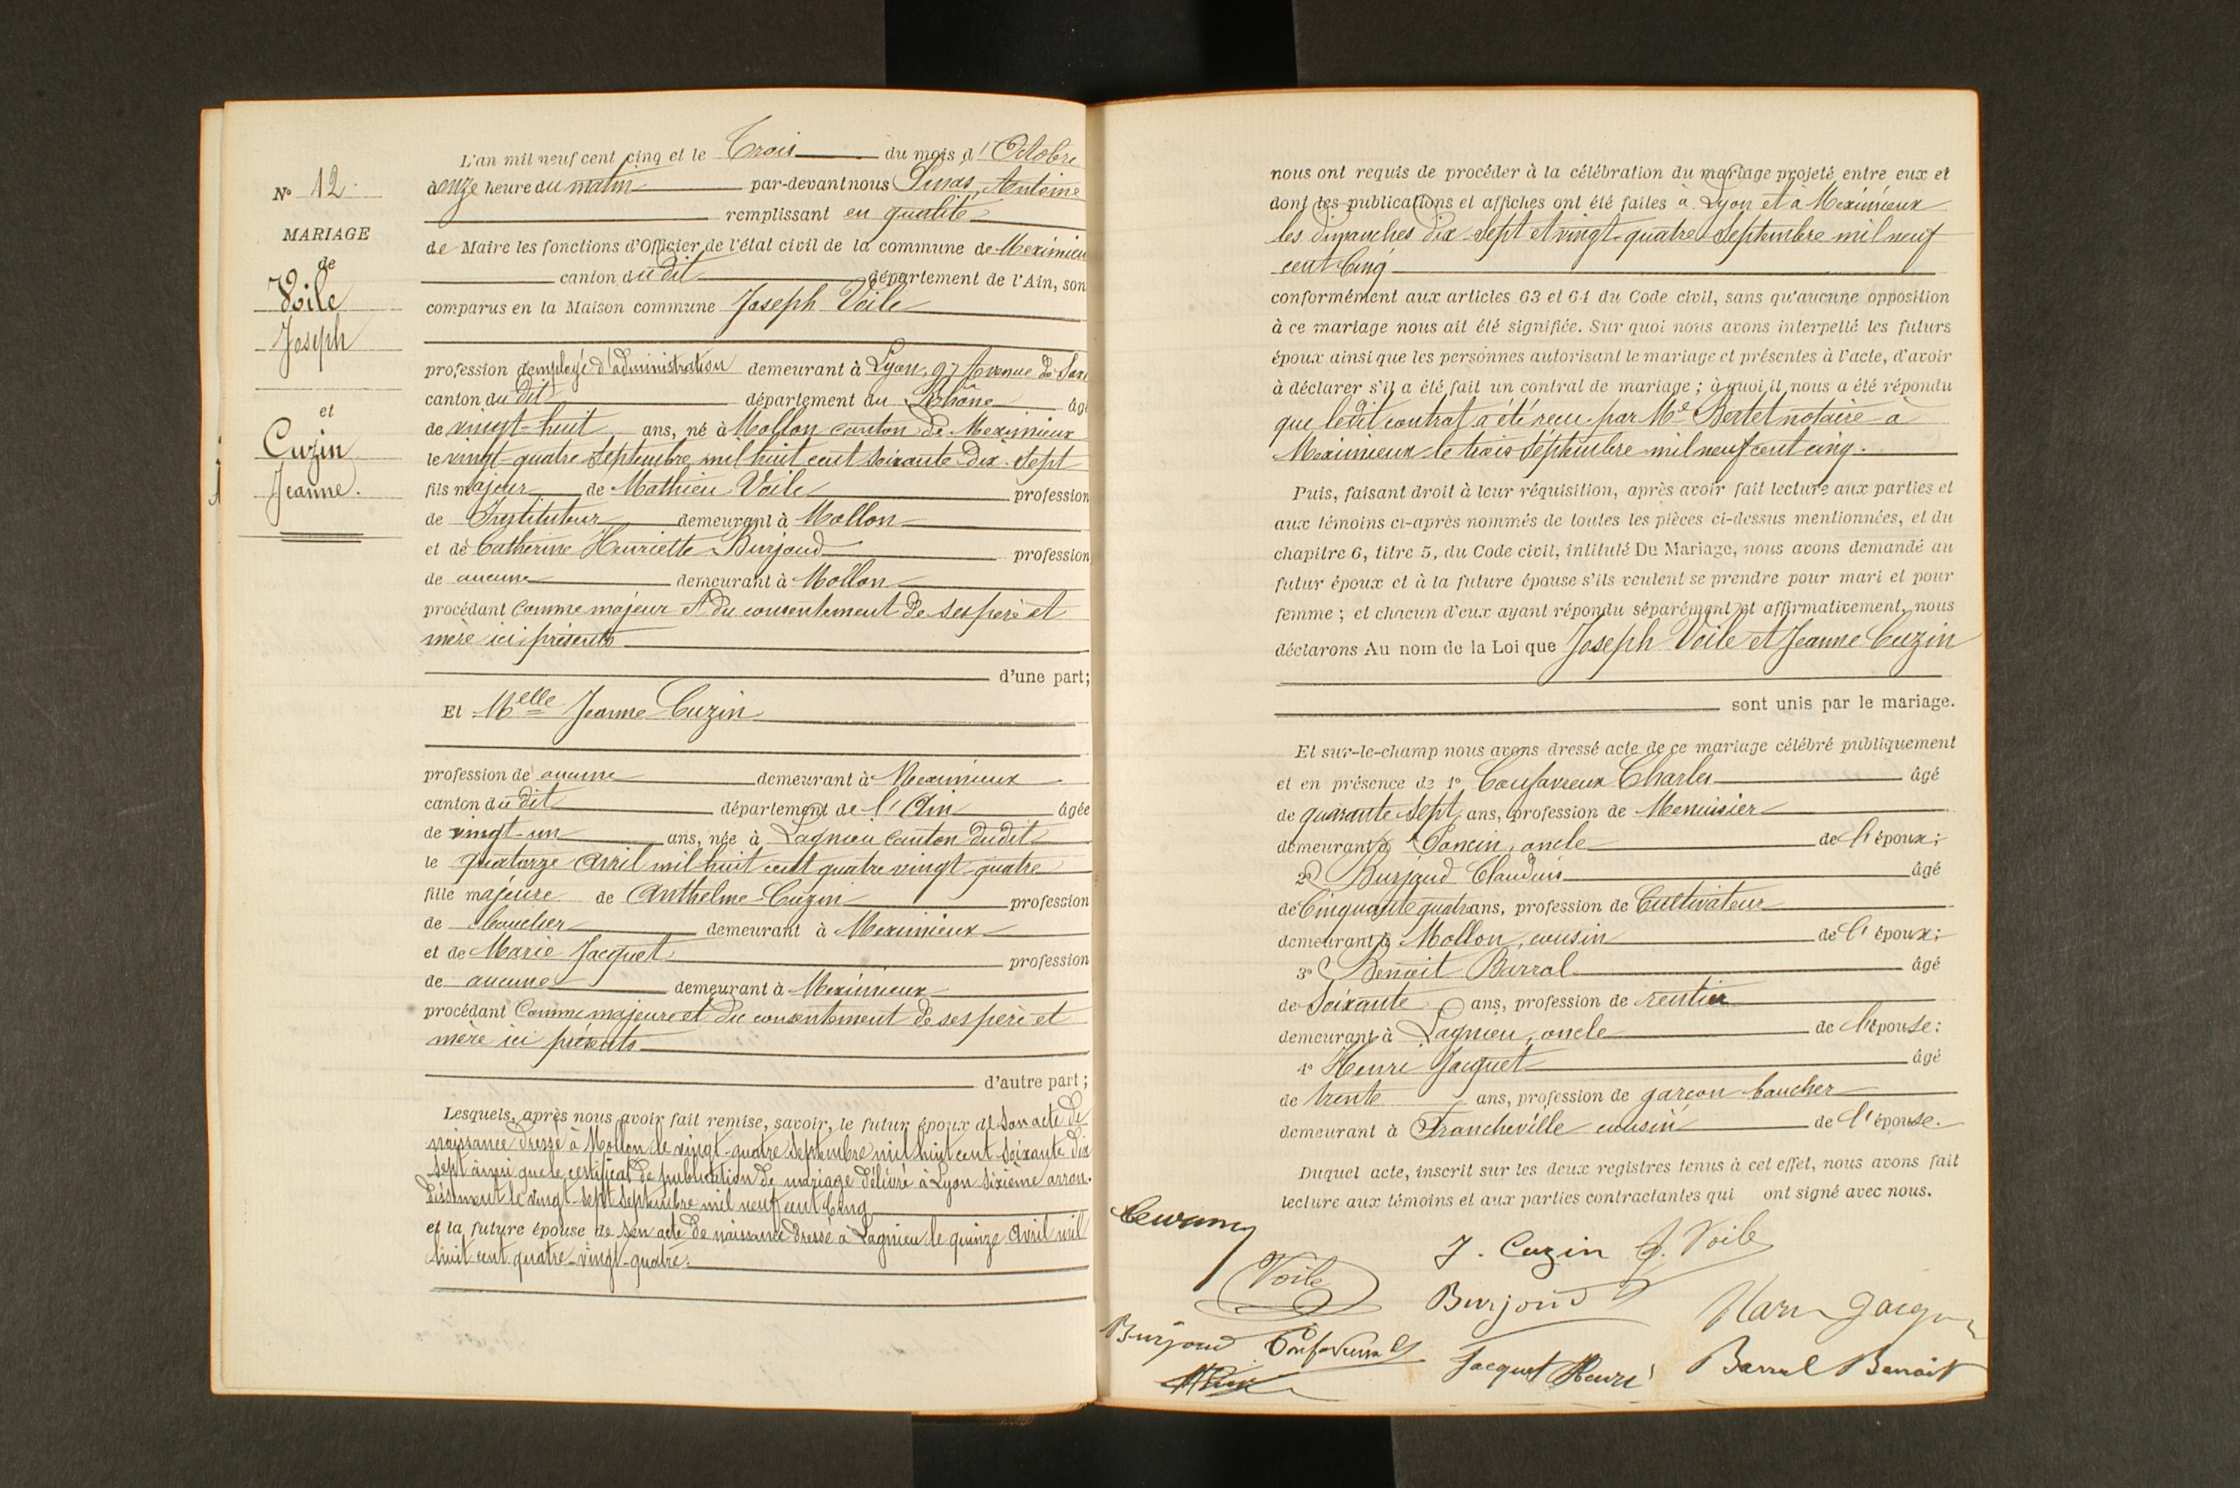 N° 12
MARIAGE
de
Voile
Joseph
et
Cuzin
Jeanne.
L'an mil neuf cent cinq et le Trois du mois d'Octobre
à onze heure du matin par-devant nous Antoine
remplissant en qualité
de Maire les fonctions d'Officier de l'état civil de la commune de Meximieu
canton du dit département de l'Ain, son
comparus en la Maison commune Joseph Voile
profession d'employé d'administration demeurant à Lyon, 97 Avenue de Saxe
canton du dit département du Rhône âg
de vingt-huit ans, né à Mollon canton de Meximieux
le vingt-quatre Septembre mil huit cent soixante-dix-sept
fils majeur de Mathieu Voile profession
de Instituteur demeurant à Mollon
et de Catherine Henriette Burjoud profession
de aucune demeurant à Mollon
procédant comme majeur et du consentement de ses père et
mère ici présents
d'une part;
Et Melle Jeanne Cuzin
profession de aucune demeurant à Meximieux
canton du dit département de l'Ain âgée
de vingt-un ans, née à Lagnieu canton dudit
le quatorze Avril mil huit cent quatre vingt-quatre
fille majeure de Anthelme Cuzin profession
de boucher demeurant à Meximieux
et de Marie Jacquet profession
de aucune demeurant à Meximieux
procédant comme majeure et du consentement de ses père et
mère ici présents
d'autre part;
Lesquels, après nous avoir fait remise, savoir, le futur époux de son acte de
naissance dressé à Mollon le vingt-quatre Septembre mil huit cent soixante dix
sept ainsi que le certificat de publication de mariage délivré à Lyon sixième arron-
dissement le vingt-sept septembre mil neuf cent cinq
et la future épouse de son acte de naissance dressé à Lagnieu le quinze Avril mil
huit cent quatre-vingt-quatre.
nous ont requis de procéder à la célébration du mariage projeté entre eux et
dont les publications et affiches ont été faites à Lyon et à Meximieux
les dimanches dix-sept et vingt-quatre Septembre mil neuf
cent Cinq
conformément aux articles 63 et 64 du Code civil, sans qu'aucune opposition
à ce mariage nous ait été signifiée. Sur quoi nous avons interpellé les futurs
époux ainsi que les personnes autorisant le mariage et présentes à l'acte, d'avoir
à déclarer s'il a été fait un contrat de mariage; à quoi il nous a été répondu
que ledit contrat a été reçu par Me Bertet notaire à
Meximieux le trois Septembre mil neuf cent cinq.
Puis, faisant droit à leur réquisition, après avoir fait lecture aux parties et
aux témoins ci-après nommés de toutes les pièces ci-dessus mentionnées, et du
chapitre 6, titre 5, du Code civil, intitulé Du Mariage, nous avons demandé au
futur époux et à la future épouse s'ils veulent se prendre pour mari et pour
femme; et chacun d'eux ayant répondu séparément et affirmativement, nous
déclarons Au nom de la Loi que Joseph Voile et Jeanne Cuzin
sont unis par le mariage.
Et sur-le-champ nous avons dressé acte de ce mariage célébré publiquement
et en présence de 1° Confavreux Charles âgé
de quarante sept ans, profession de Menuisier
demeurant à oncle de l'époux;
2° Burjoud Claudius âgé
de Cinquante quatre ans, profession de Cultivateur
demeurant à Mollon, cousin de l'époux;
3° Benoit Barral âgé
de Soixante ans, profession de rentier
demeurant à Lagnieu, oncle de l'épouse;
4° Henri Jacquet âgé
de trente ans, profession de garçon boucher
demeurant à Francheville cousin de l'épouse.
Duquel acte, inscrit sur les deux registres tenus à cet effet, nous avons fait
lecture aux témoins et aux parties contractantes qui ont signé avec nous.
J. Cuzin J. Voile
Voile Burjoud
Burjoud
Jacquet Henri Barral Benoit